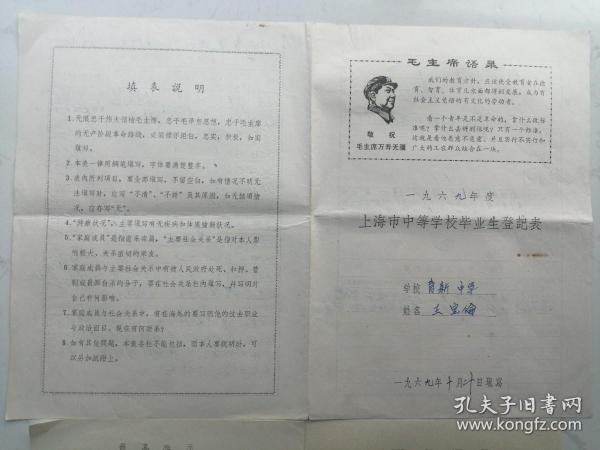 填表说明
1.无限忠于伟大领袖毛主席，忠于毛泽东思想，忠于毛主席
的无产阶级革命路线，必须襟怀坦白，忠实，积极，如实
填写。
2.本表一律用钢笔填写，字体要清楚整齐。
3.表内所列项目，要全部填写，不留空白，如有情况不明无
法填写时，应写“不清”、“不详”及其原因，如无该项情
况，应写“无”。
4.“健康状况”：主要填写有无疾病和体质强弱状况。
5.“家庭成员”是指直系亲属，“主要社会关系”是指对本人影
响较大、关系密切的亲友。
6.家庭成员与主要社会关系中有被人民政府处死、扣押、管
制或畏罪自杀的分子，要在社会关系栏内填写，并写明对
自己有何影响。
7.家庭成员与社会关系中，有在海外的要写明他的过去职业
与政治面目，现在有何联系？
8.如有其他问题，本表各栏不能包括，而本人要说明时，可
以另加纸附上。
毛主席语录
我们的教育方针，应该使受教育者在德
育、智育、体育几方面都得到发展，成为有
社会主义觉悟的有文化的劳动者。
看一个青年是不是革命的，拿什么做标
准呢？拿什么去辨别他呢？只有一个标准，
这就是看他愿意不愿意、并且实行不实行和
广大的工农群众结合在一块。
敬祝
毛主席万寿无疆
一九六九年度
上海市中等学校毕业生登记表
学校 育新中学
姓名 王宝
一九六九年十月二十日填写
孔夫子旧书网
www.kongfz.com